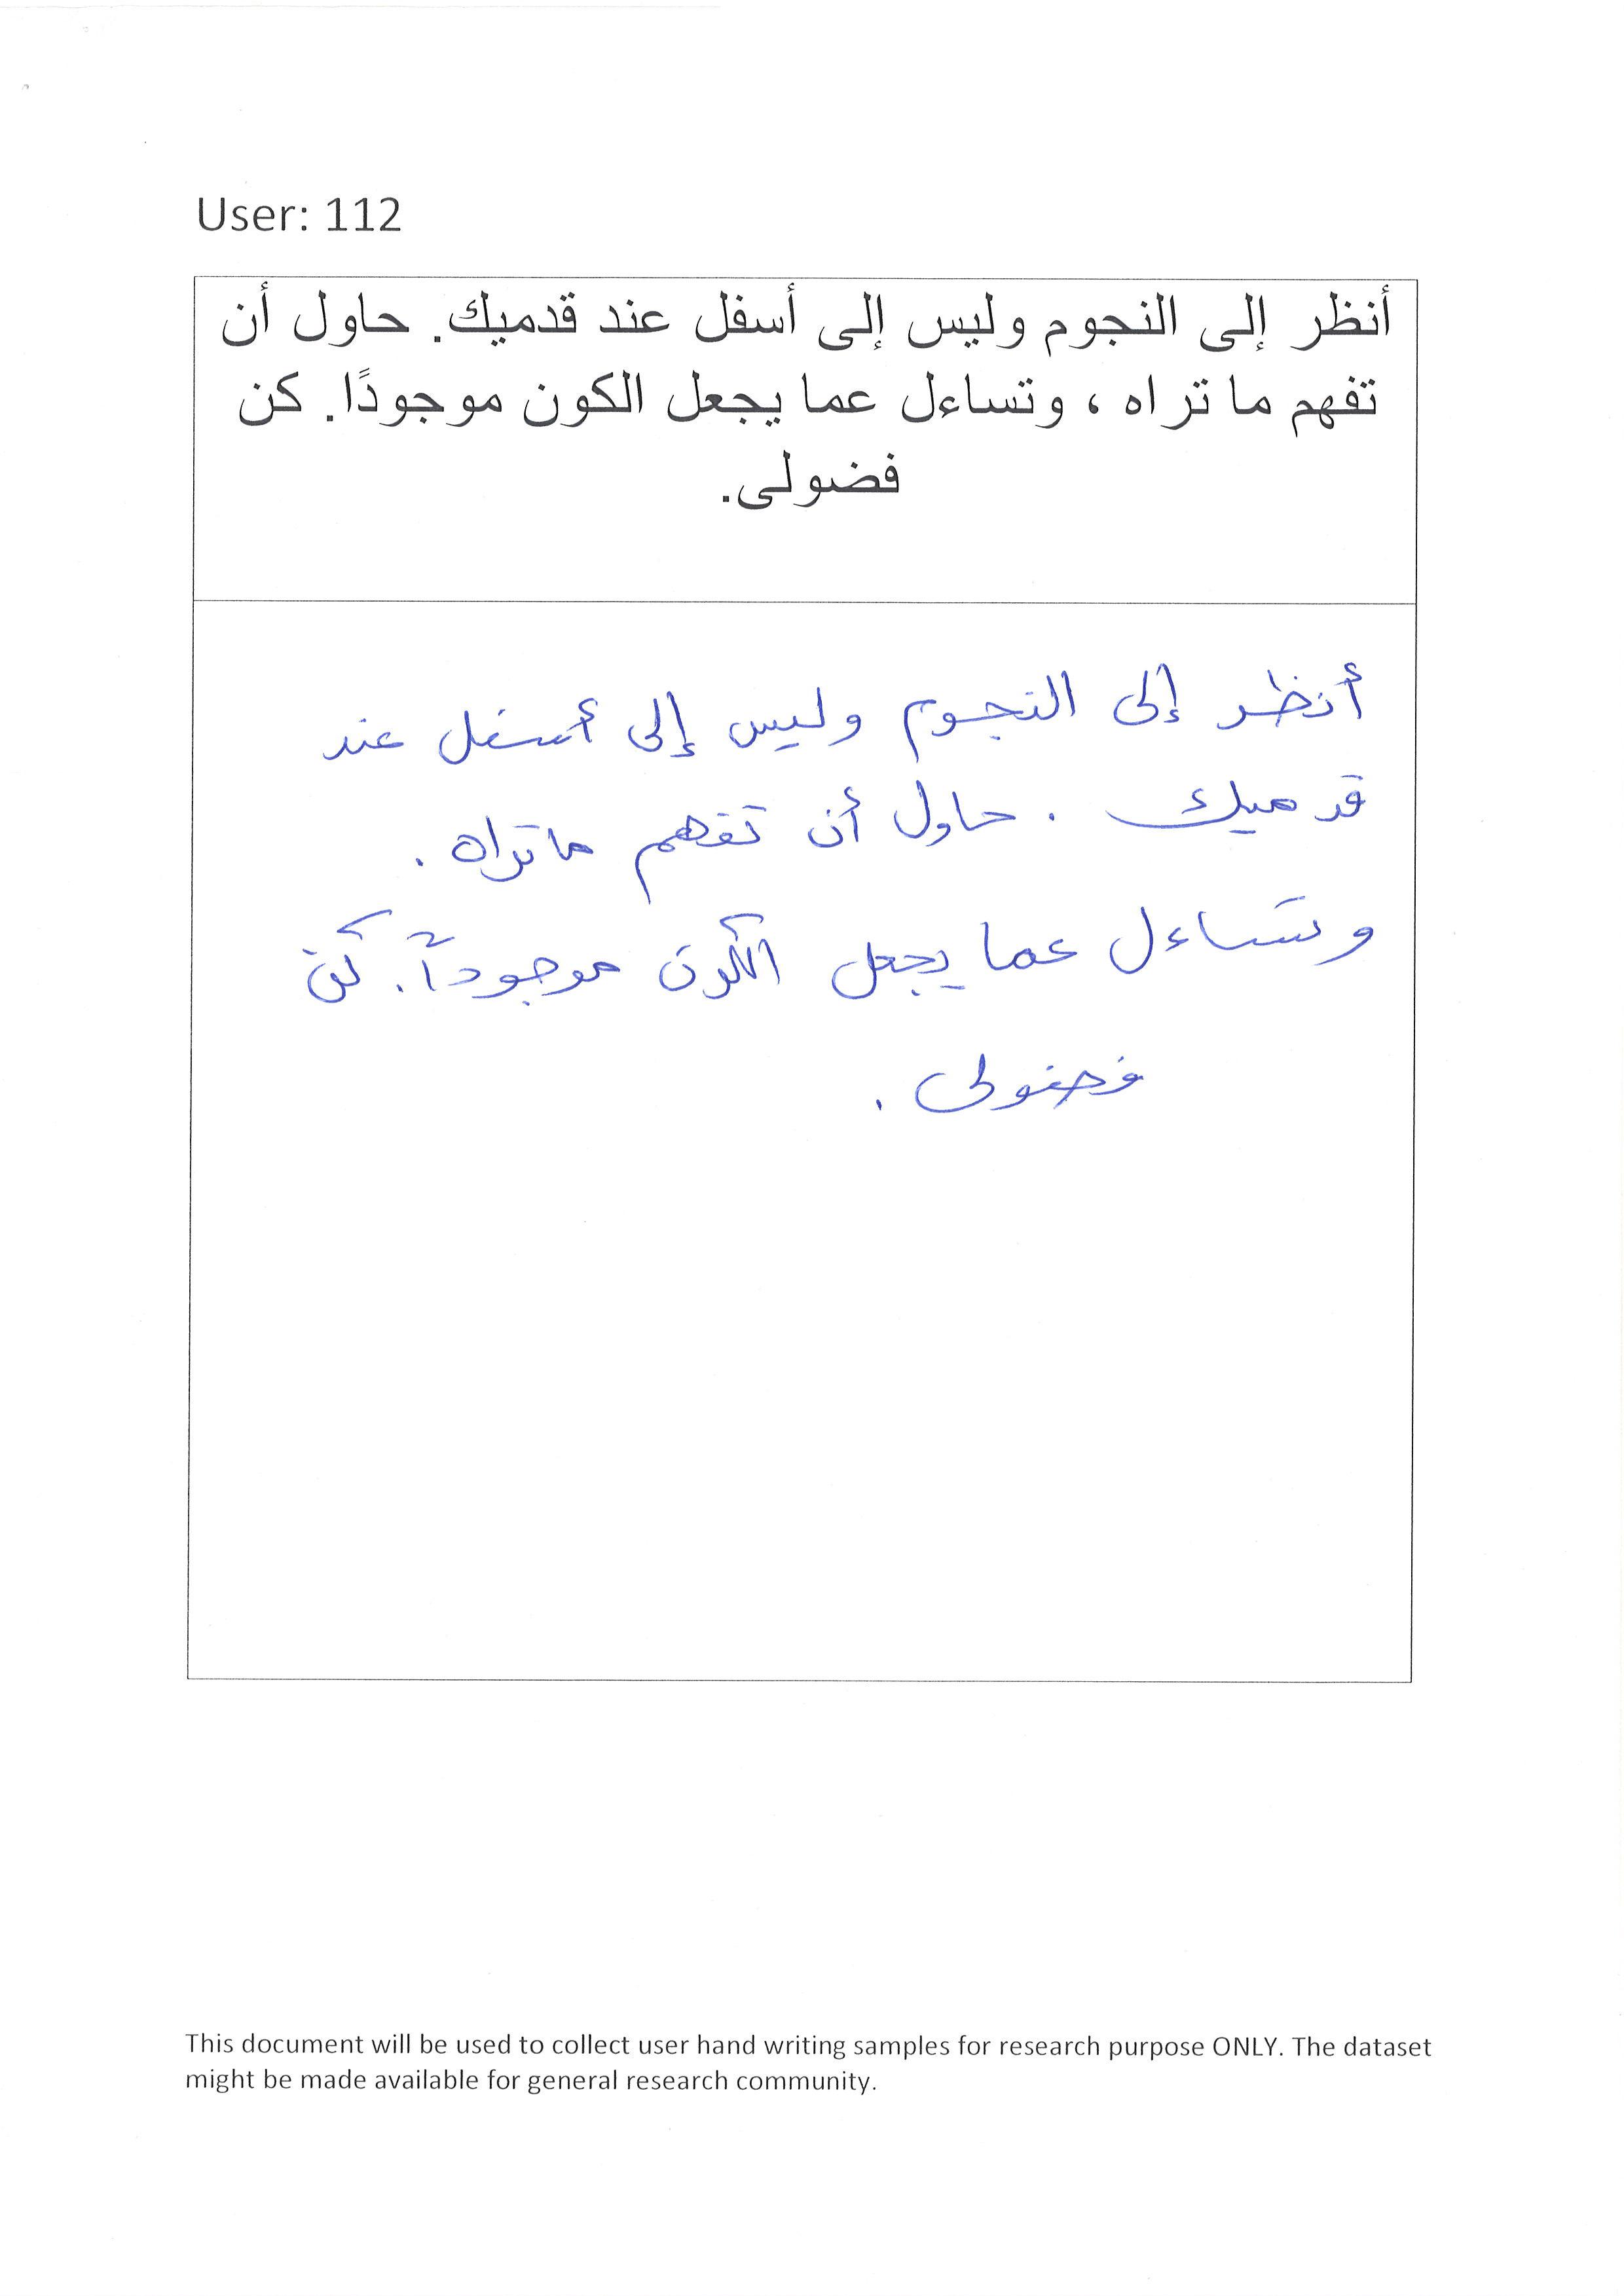 User: 112
أنظر إلى النجوم وليس إلى أسفل عند قدميك. حاول أن
تفهم ما تراه ، وتساءل عما يجعل الكون موجودًا. كن
فضولى.
أنظر إلى النجوم وليس إلى أسفل عند
قدميك . حاول أن تفهم ما تراه .
وتساءل عما يجعل الكون موجوداً. كن
فضولى .
This document will be used to collect user hand writing samples for research purpose ONLY. The dataset
might be made available for general research community.